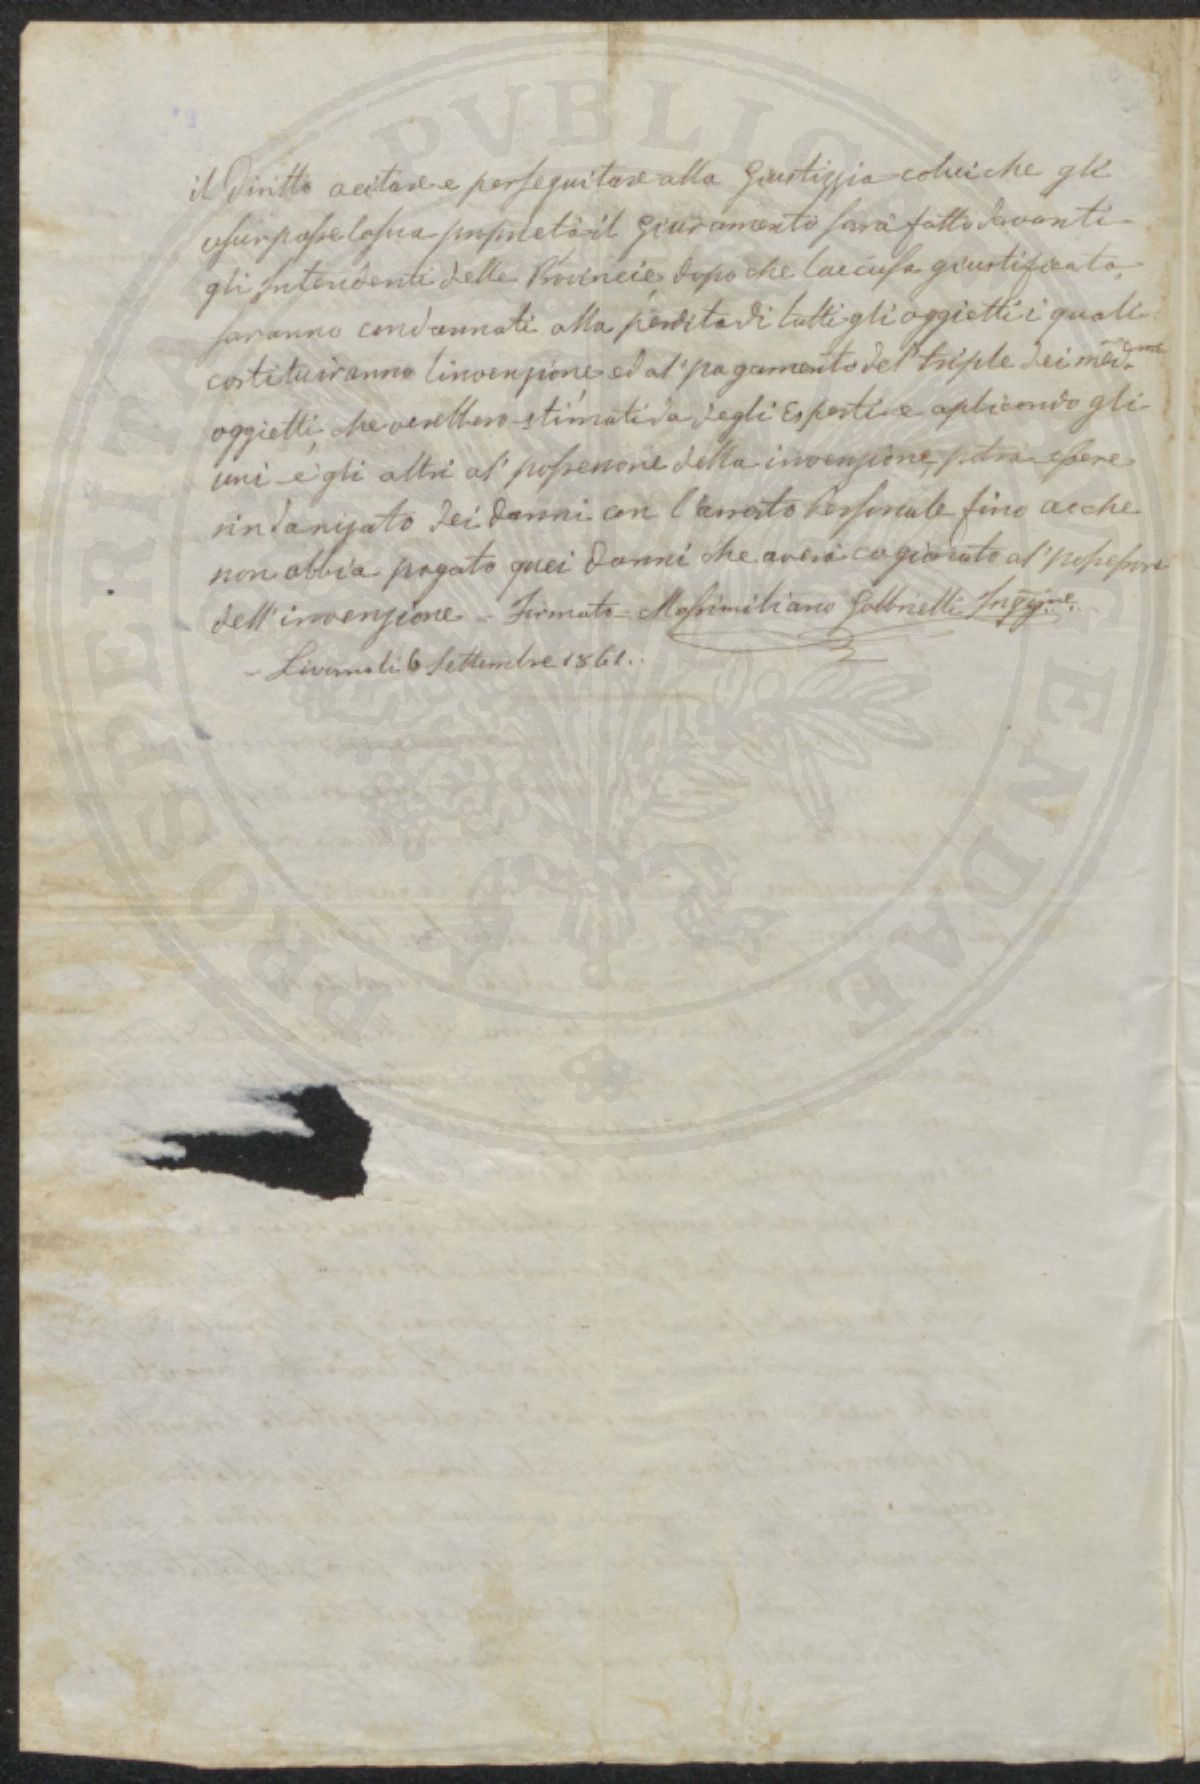 il Diritto acitare e perseguitare alla Giustizzia colui che gli
usurpasse la sua proprietà il Giuramento sarà fatto davanti
gli Intendenti delle Provincie, dopo che laccusa giustificata
saranno condannati alla perdita di tutti gli oggietti i quali
costituiranno linvenzione ed al' pagamento del' triple dei med.mi
oggietti, che verebbero stimati da degli Esperti e aplicando gli
uni e gli altri al' possessore della invenzione, potrà essere
rindanizato dei danni con l'arresto Personale fino acche
non abbia pagato quei danni che averà cagionato al' possessore
dell'invenzione - Firmato - Massimiliano Gabbrielli Ingg:re
- Livorno li 6 Settembre 1861.
PROSPERITATI PVBLICAE AVGENDAE